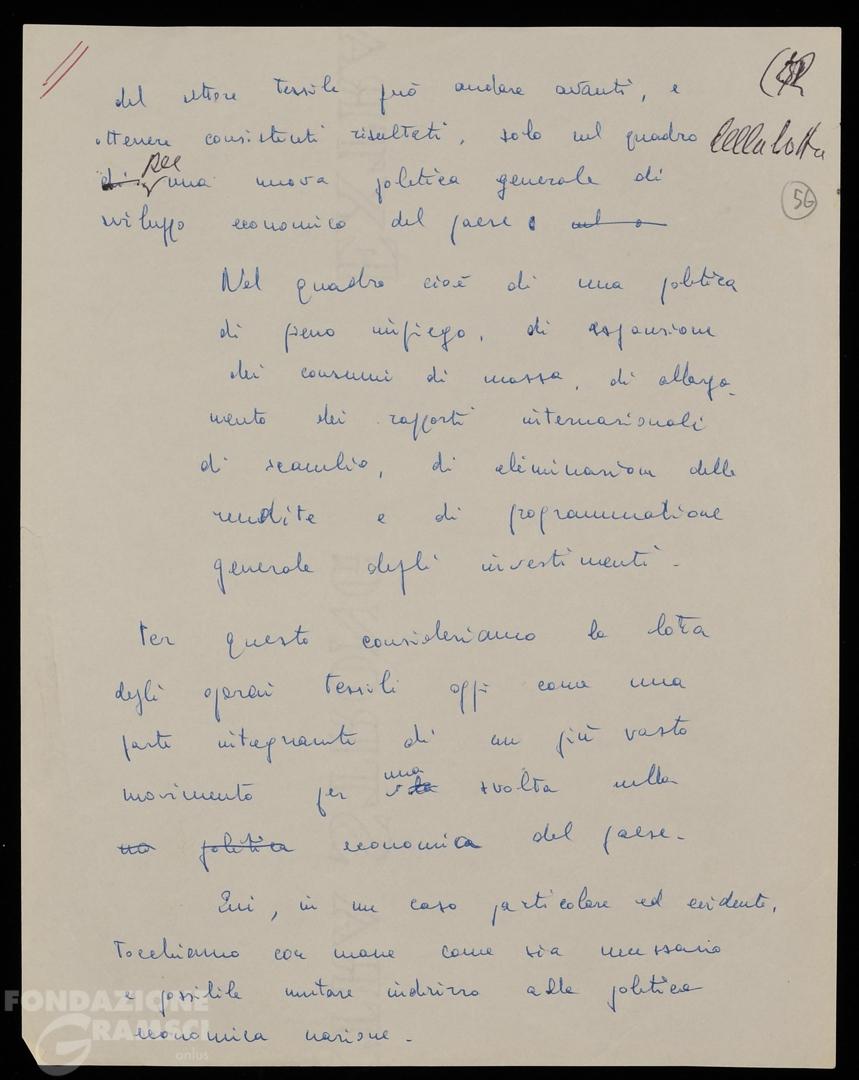 del settore tessile può andare avanti, e
ottenere consistenti risultati, solo nel quadro della lotta
di per una nuova politica generale di
56
sviluppo economico del paese nel
Nel quadro cioè di una politica
di pieno impiego, di espansione
dei consumi di massa, di allarga-
mento dei rapporti internazionali
di scambio, di eliminazione delle
rendite e di programmazione
generale degli investimenti.
Per questo consideriamo la lotta
degli operai tessili oggi come una
parte integrante di un più vasto
movimento per una svolta nella
politica economica del paese.
Qui, in un caso particolare ed evidente,
tocchiamo con mano come sia necessario
e possibile mutare indirizzo alla politica
economica nazione.
FONDAZIONE
GRAMSCI
onlus